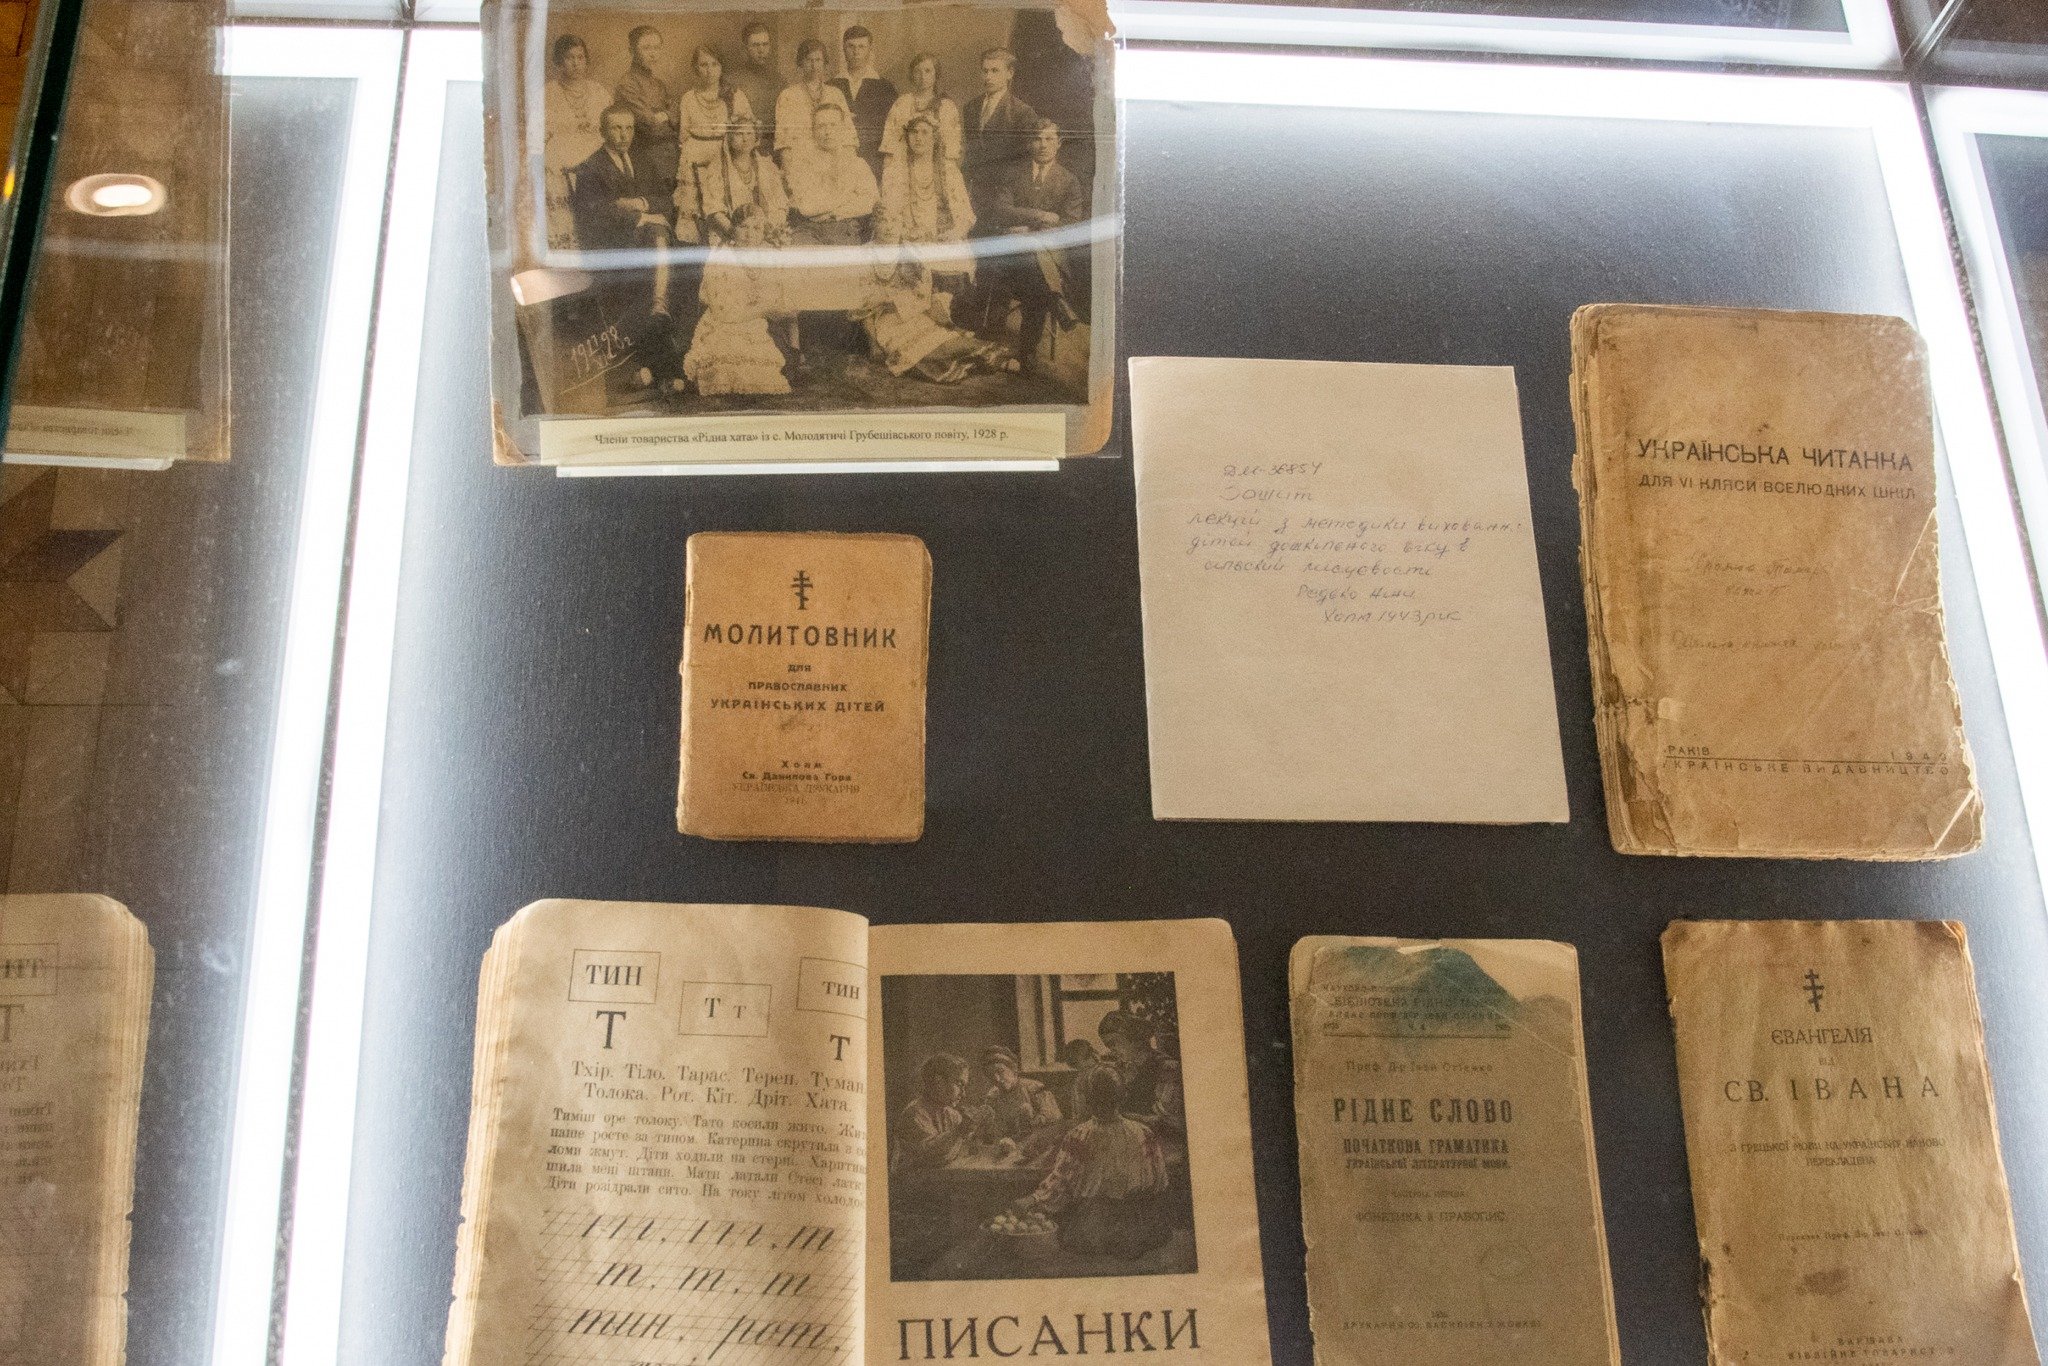 1928
Члени товариства «Рідна хата» із с. Молодятичі Грубешівського повіту, 1928 р.
МОЛИТОВНИК
ДЛЯ
ПРАВОСЛАВНИХ
УКРАЇНСЬКИХ ДІТЕЙ
Холм
Св. Данилова Гора
УКРАЇНСЬКА ДРУКАРНЯ
1941
ДМ-36854
Зошит
лекцій з методики виховання
дітей дошкільного віку в
сільській місцевости
Холм 1943 рік
УКРАЇНСЬКА ЧИТАНКА
ДЛЯ VI КЛЯСИ ВСЕЛЮДНИХ ШКІЛ
РАКІВ 1940
УКРАЇНСЬКЕ ВИДАВНИЦТВО
ТИН
Т т
ТИН
Т
Т
Тхір. Тіло. Тарас. Терен. Туман
Толока. Рот. Кіт. Дріт. Хата.
Тиміш оре толоку. Тато косили жито.
наше росте за тином. Катерина скрутила з
ломи жмут. Діти ходили на стерні.
шила мені штани. Мати латали
Діти розідрали сито. На току літом
т. т. т
т. т. т
тин. рот.
ПИСАНКИ
Проф. Др Іван Огієнко
РІДНЕ СЛОВО
ПОЧАТКОВА ГРАМАТИКА
УКРАЇНСЬКОЇ ЛІТЕРАТУРНОЇ МОВИ.
ЧАСТИНА ПЕРША:
ФОНЕТИКА Й ПРАВОПИС
ЄВАНГЕЛІЯ
ВІД
СВ. ІВАНА
З ГРЕЦЬКОЇ МОВИ НА УКРАЇНСЬКУ НАНОВО
ПЕРЕКЛАДЕНА
Переклав Проф. Др Іван Огієнко
ВАРШАВА